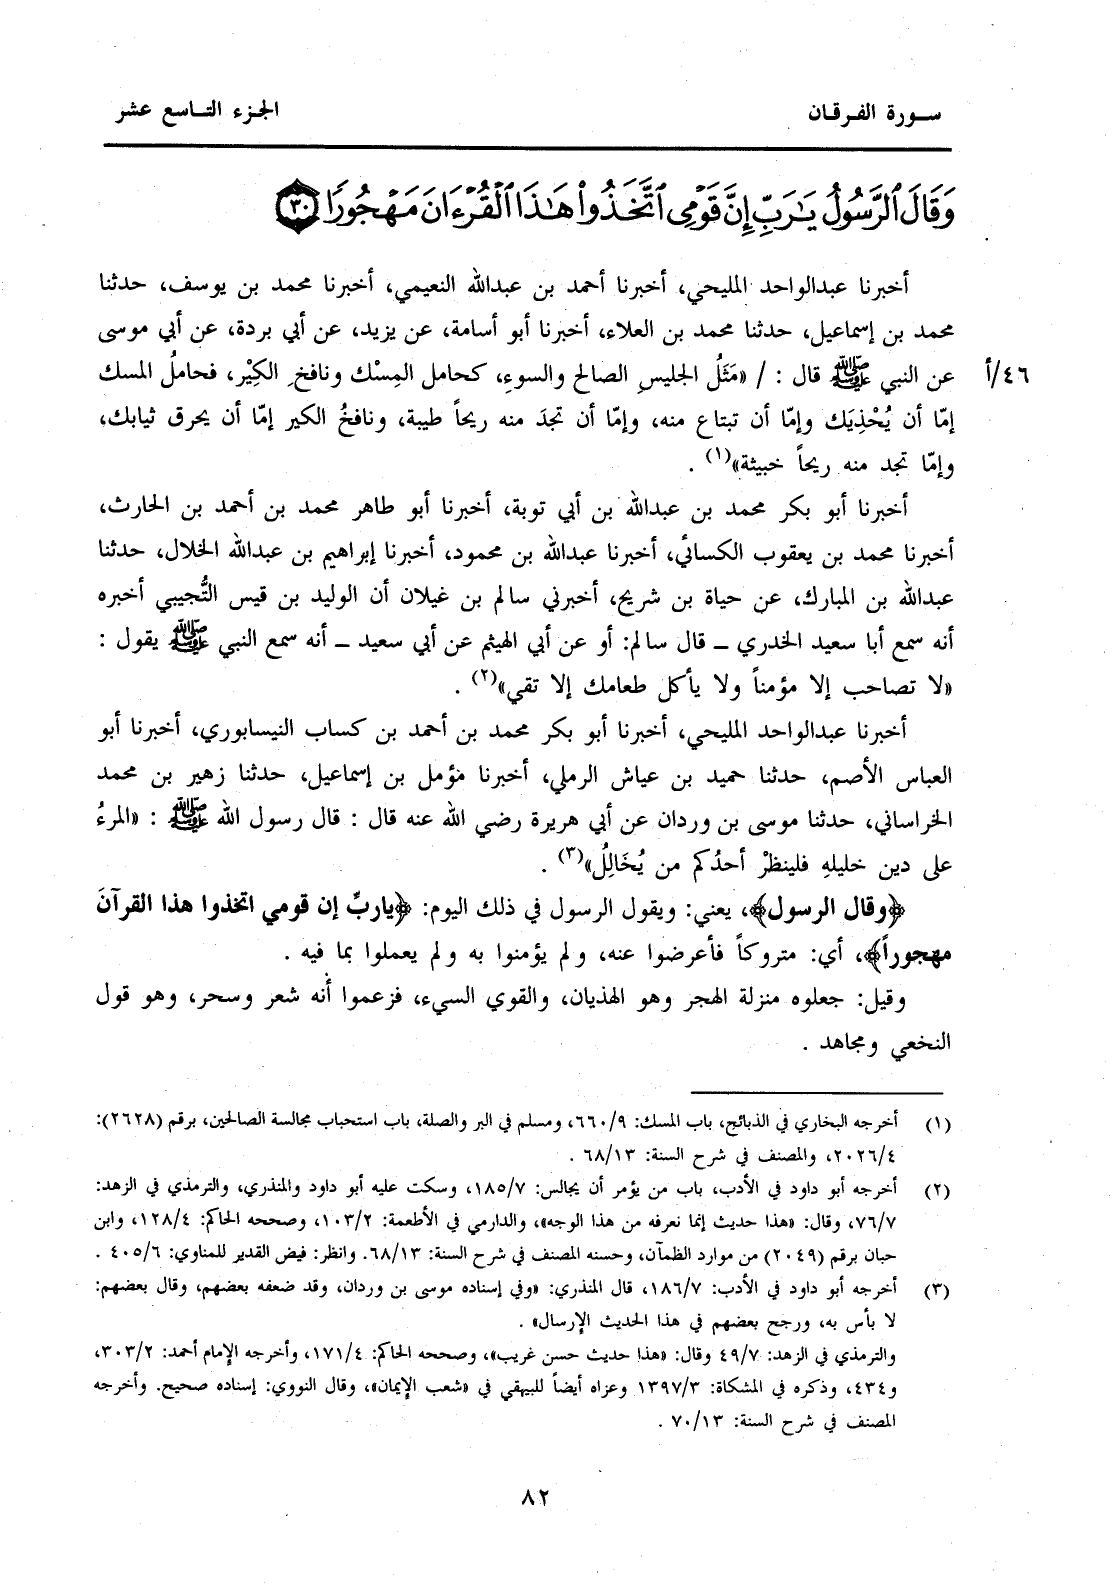 سورة الفرقان
الجزء التاسع عشر
وَقَالَ ٱلرَّسُولُ يَٰرَبِّ إِنَّ قَوْمِى ٱتَّخَذُوا۟ هَٰذَا ٱلْقُرْءَانَ مَهْجُورًا ٣٠
أخبرنا عبدالواحد المليحي، أخبرنا أحمد بن عبدالله النعيمي، أخبرنا محمد بن يوسف، حدثنا
محمد بن إسماعيل، حدثنا محمد بن العلاء، أخبرنا أبو أسامة، عن يزيد، عن أبي بردة، عن أبي موسى
٤٦/أ عن النبي ﷺ قال : / «مَثَلُ الجليسِ الصالح والسوءِ، كحامل المِسْك ونافخِ الكِيْر، فحاملُ المسك
إمّا أن يُحْذِيَك وإمّا أن تبتاع منه، وإمّا أن تجدَ منه ريحاً طيبة، ونافخُ الكير إمّا أن يحرق ثيابك،
وإمّا تجد منه ريحاً خبيثة»(١) .
أخبرنا أبو بكر محمد بن عبدالله بن أبي توبة، أخبرنا أبو طاهر محمد بن أحمد بن الحارث،
أخبرنا محمد بن يعقوب الكسائي، أخبرنا عبدالله بن محمود، أخبرنا إبراهيم بن عبدالله الخلال، حدثنا
عبدالله بن المبارك، عن حياة بن شريح، أخبرني سالم بن غيلان أن الوليد بن قيس التُّجيبي أخبره
أنه سمع أبا سعيد الخدري ــ قال سالم: أو عن أبي الهيثم عن أبي سعيد ــ أنه سمع النبي ﷺ يقول :
«لا تصاحب إلا مؤمناً ولا يأكل طعامك إلا تقي»(٢) .
أخبرنا عبدالواحد المليحي، أخبرنا أبو بكر محمد بن أحمد بن كساب النيسابوري، أخبرنا أبو
العباس الأصم، حدثنا حميد بن عياش الرملي، أخبرنا مؤمل بن إسماعيل، حدثنا زهير بن محمد
الخراساني، حدثنا موسى بن وردان عن أبي هريرة رضي الله عنه قال : قال رسول الله ﷺ : «المرءُ
على دين خليلهِ فلينظرْ أحدُكم من يُخَالِلُ»(٣) .
﴿وقال الرسول﴾، يعني: ويقول الرسول في ذلك اليوم: ﴿ياربِّ إن قومي اتخذوا هذا القرآنَ
مهجوراً﴾، أي: متروكاً فأعرضوا عنه، ولم يؤمنوا به ولم يعملوا بما فيه .
وقيل: جعلوه منزلة الهجر وهو الهذيان، والقوي السيء، فزعموا أنه شعر وسحر، وهو قول
النخعي ومجاهد .
(١) أخرجه البخاري في الذبائح، باب المسك: ٦٦٠/٩، ومسلم في البر والصلة، باب استحباب مجالسة الصالحين، برقم (٢٦٢٨):
٢٠٢٦/٤، والمصنف في شرح السنة: ٦٨/١٣ .
(٢) أخرجه أبو داود في الأدب، باب من يؤمر أن يجالس: ١٨٥/٧، وسكت عليه أبو داود والمنذري، والترمذي في الزهد:
٧٦/٧، وقال: «هذا حديث إنما نعرفه من هذا الوجه»، والدارمي في الأطعمة: ١٠٣/٢، وصححه الحاكم: ١٢٨/٤، وابن
حبان برقم (٢٠٤٩) من موارد الظمآن، وحسنه المصنف في شرح السنة: ٦٨/١٣. وانظر: فيض القدير للمناوي: ٤٠٥/٦ .
(٣) أخرجه أبو داود في الأدب: ١٨٦/٧، قال المنذري: «وفي إسناده موسى بن وردان، وقد ضعفه بعضهم، وقال بعضهم:
لا بأس به، ورجح بعضهم في هذا الحديث الإرسال» .
والترمذي في الزهد: ٤٩/٧ وقال: «هذا حديث حسن غريب»، وصححه الحاكم: ١٧١/٤، وأخرجه الإمام أحمد: ٣٠٣/٢،
و٤٣٤، وذكره في المشكاة: ١٣٩٧/٣ وعزاه أيضاً للبيهقي في «شعب الإيمان»، وقال النووي: إسناده صحيح. وأخرجه
المصنف في شرح السنة: ٧٠/١٣ .
٨٢